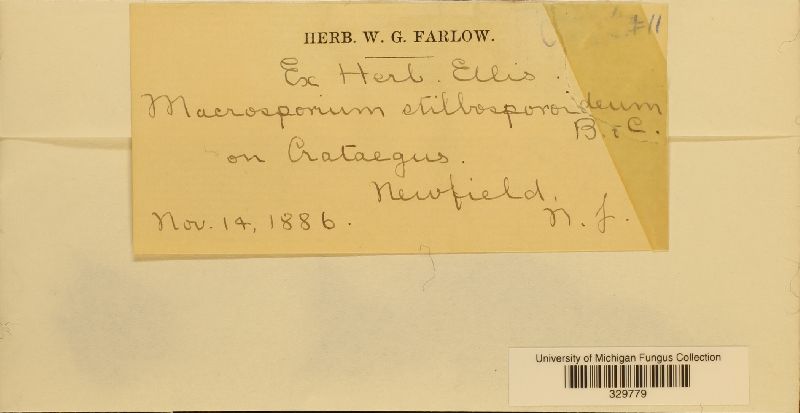 #11
HERB. W. G. FARLOW.
Ex Herb. Ellis.
Macrosporium stilbosporoideum
B. & C.
on Crataegus.
Newfield,
N. J.
Nov. 14, 1886.
University of Michigan Fungus Collection
329779